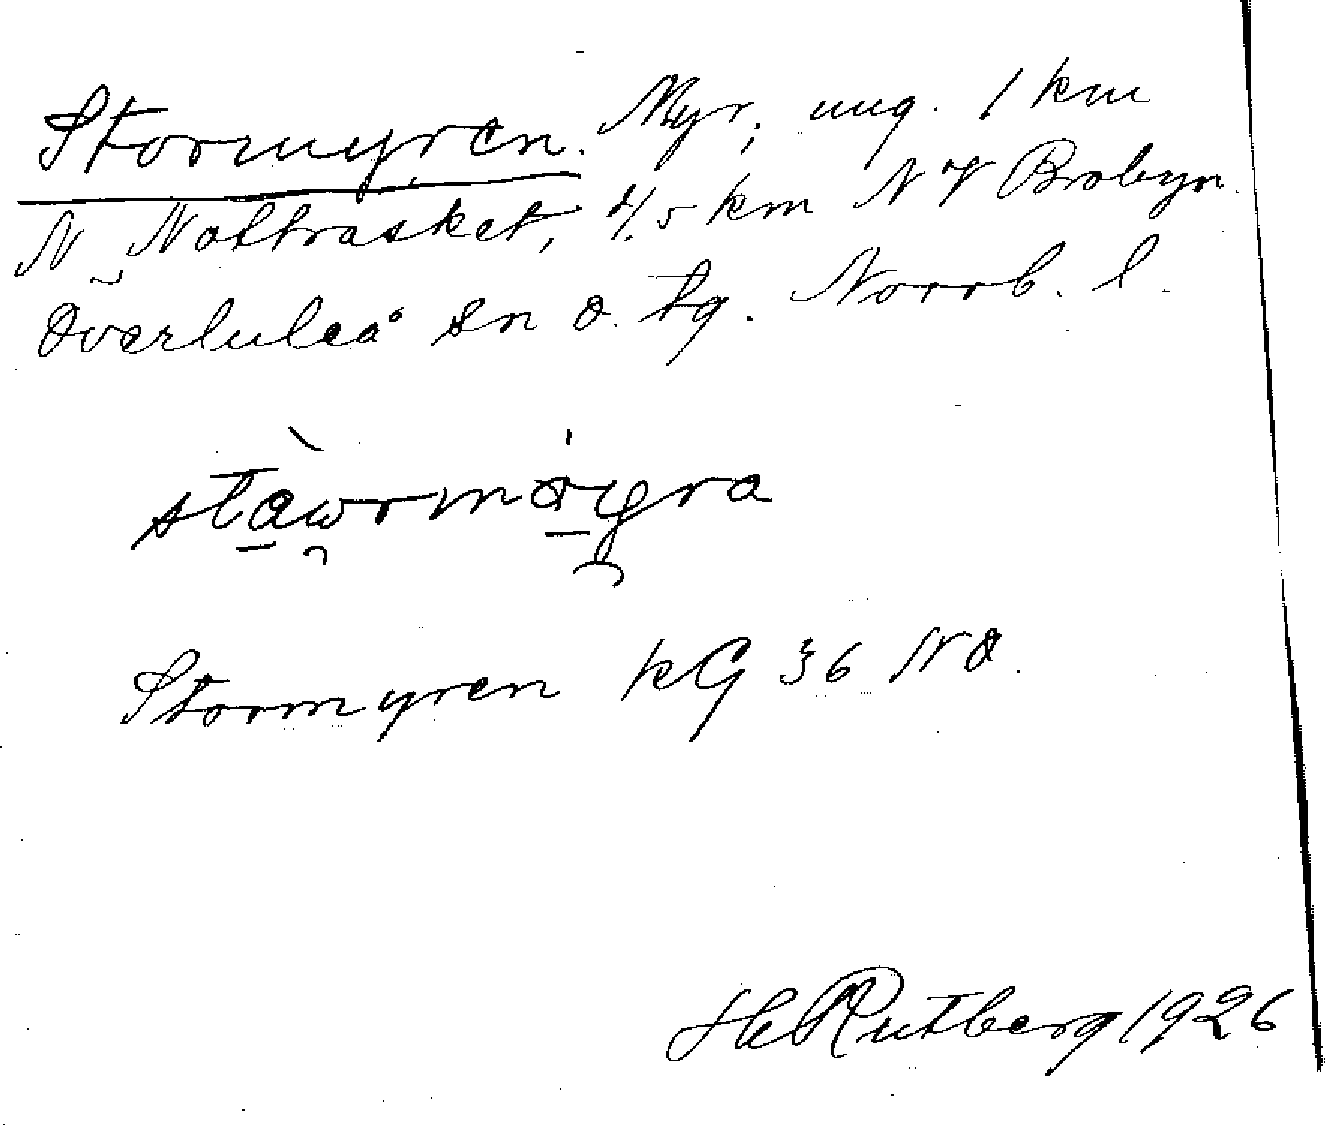 Stormyren. Myr, ung. 1 km
N Notträsket, 4,5 km NV Brobyn.
Överluleå sn ö. tg. Norrb. l.
stawrmöyra
Stormyren kG 36 NO.
H Rutberg 1926